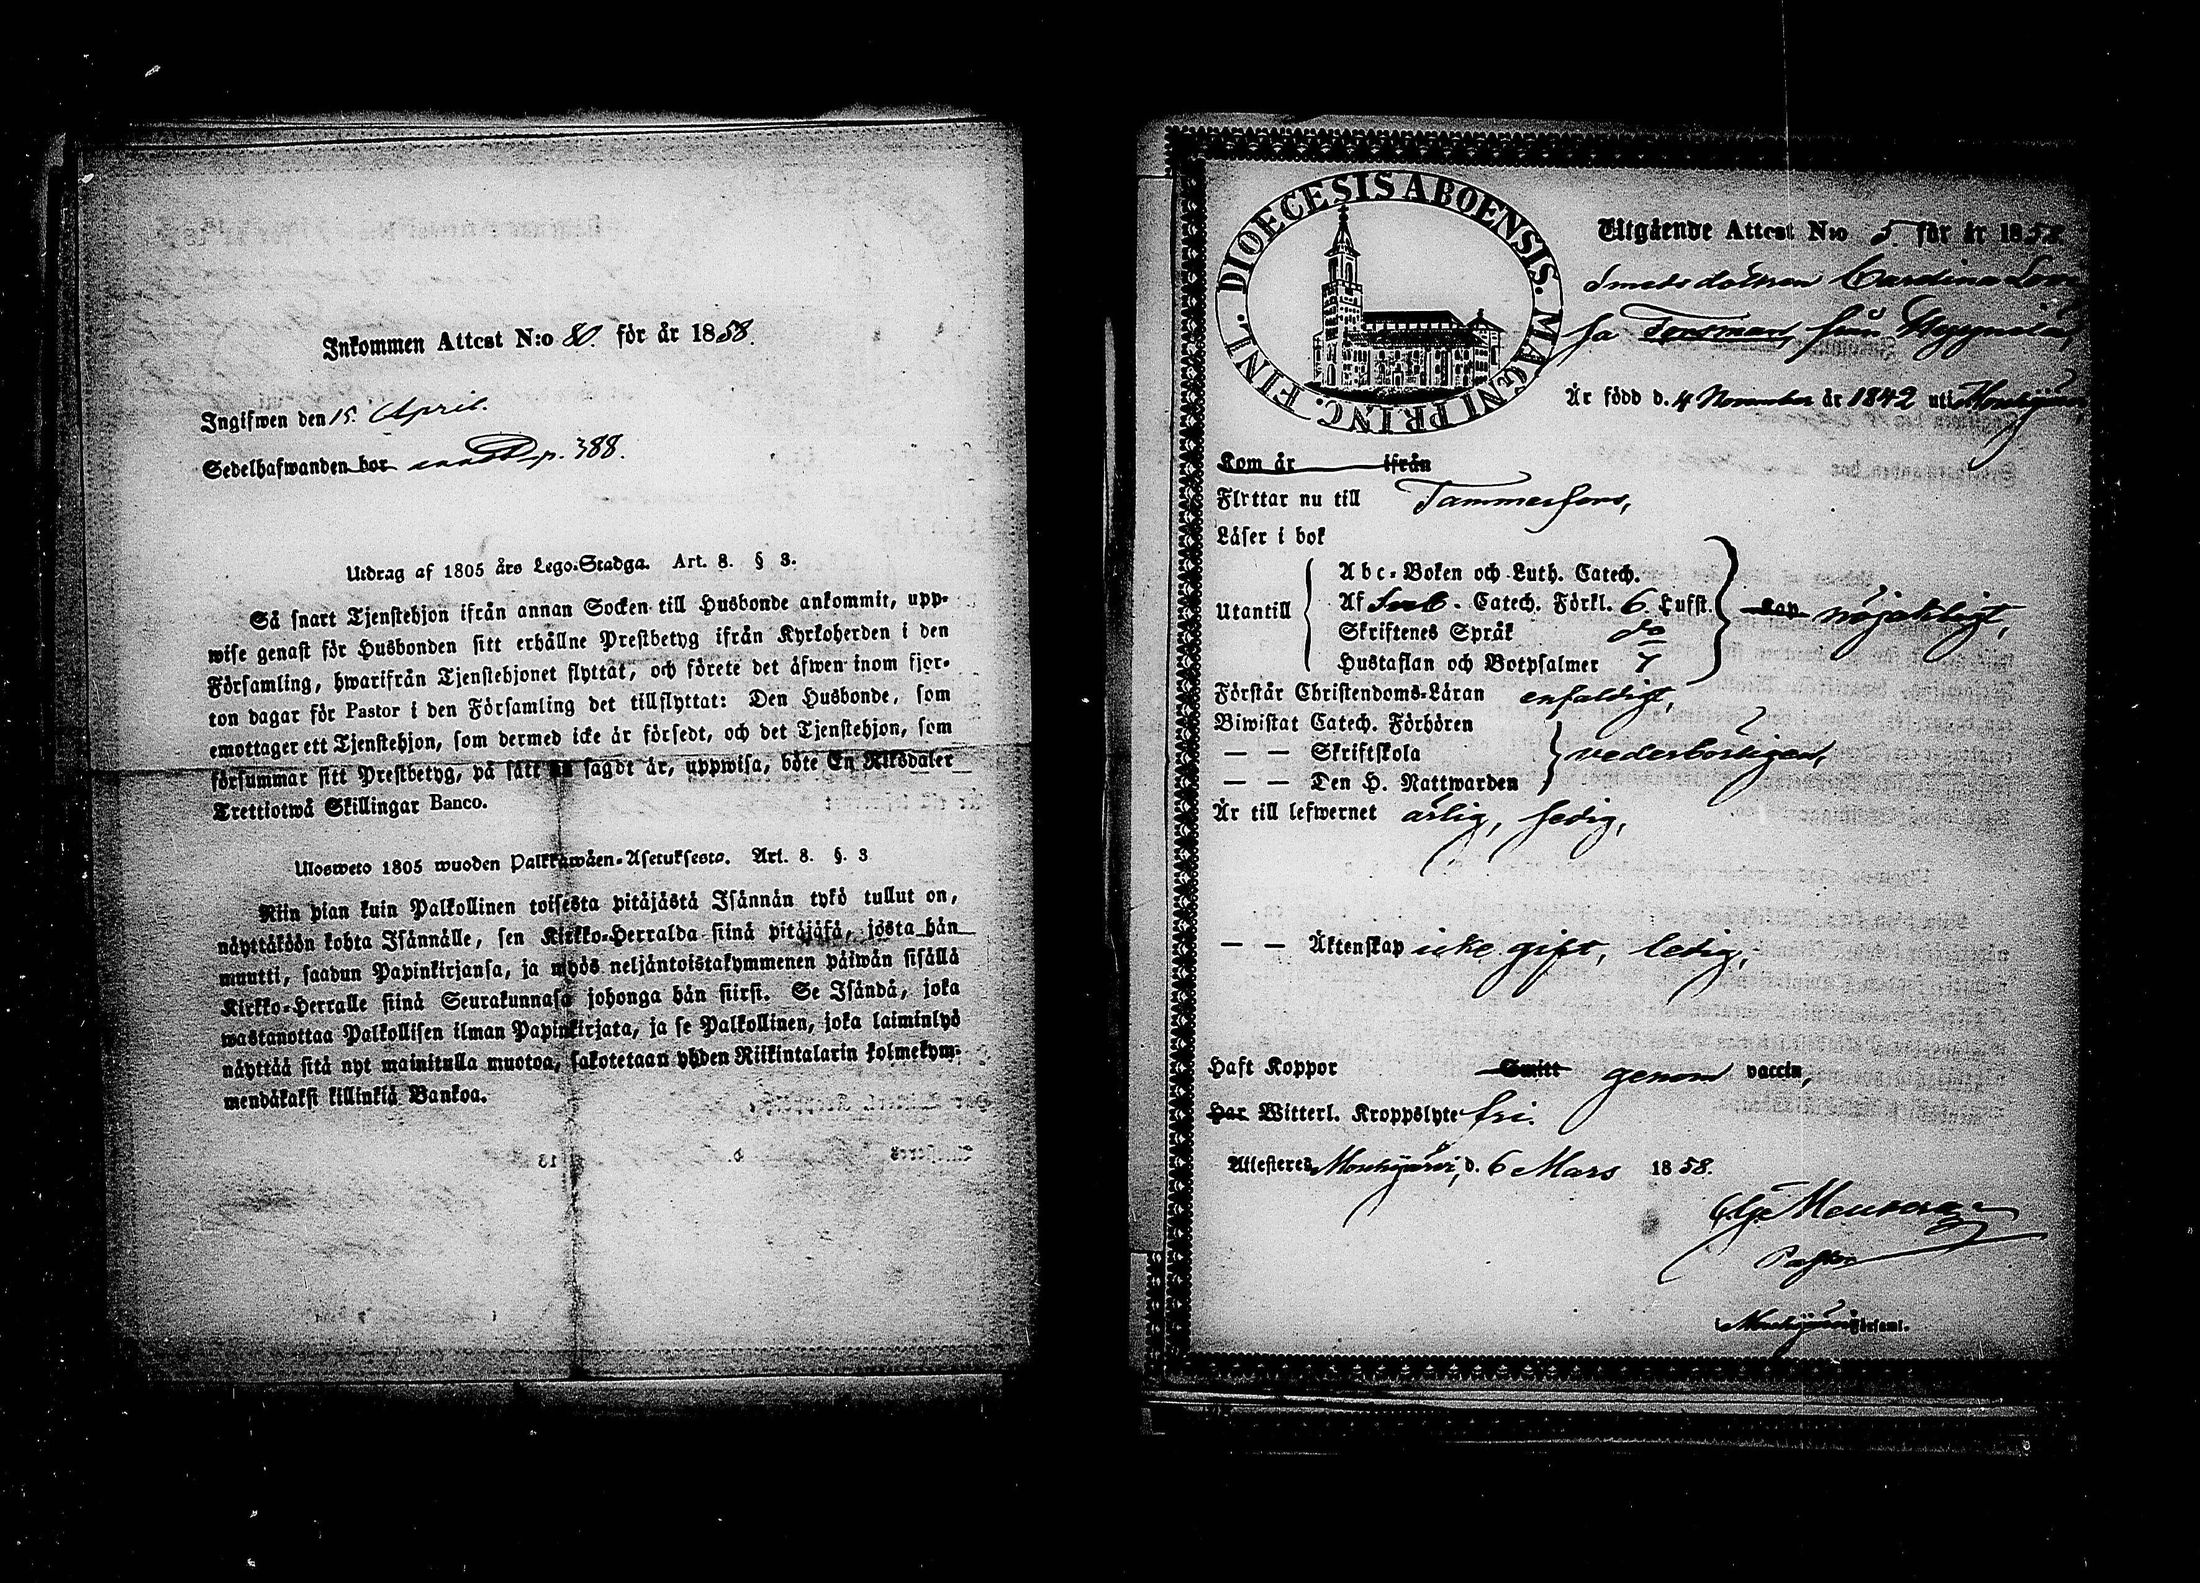 Inkommen Attest N:o 80. för år 1858.
Ingifwen den 15. April.
Sedelhafwanden bor p. 388.
Utdrag af 1805 års Lego-Stadga. Art. 8. § 3.
Så snart Tjenstehjon ifrån annan Socken till Husbonde ankommit, upp-
wise genast för Husbonden sitt erhållne Prestbetyg ifrån Kyrkoherden i den
Församling, hwarifrån Tjenstehjonet flyttat, och förete det äfwen inom fjor-
ton dagar för Pastor i den Församling det tillflyttat: Den Husbonde, som
emottager ett Tjenstehjon, som dermed icke är försedt, och det Tjenstehjon, som
försummar sitt Prestbetyg, på sätt nu sagdt är, uppwisa, böte En Riksdaler
Trettiotwå Skillingar Banco.
Ulosweto 1805 wuoden Palkkawäen-Asetuksesta. Art. 8. §. 3
Niin pian kuin Palkollinen toisesta pitäjästä Isännän tykö tullut on,
näyttäköön kohta Isännälle, sen Kirkko-Herralda siinä pitäjäsä, josta hän
muutti, saadun Papinkirjansa, ja myös neljäntoistakymmenen päiwän sisällä
Kirkko-Herralle siinä Seurakunnasa johonga hän siirsi. Se Isändä, joka
wastanottaa Palkollisen ilman Papinkirjata, ja se Palkollinen, joka laiminlyö
näyttää sitä nyt mainitulla muotoa, sakotetaan yhden Riikintalarin kolmekym-
mendäkaksi killinkiä Bankoa.
DIOECESIS ABOENSIS. MAGNI PRINC. FINL.
Utgående Attest N:o 5. för år 1858
Smedsdottren Carolina Lovi
sa Forsman, från Heggmalan,
Är född d. 4 November år 1842 uti Mouhijärvi
Kom år ifrån
Flyttar nu till Tammerfors,
Läser i bok
Utantill
Abc-Boken och Luth. Catech.
Af Sveb. Catech. Förkl. 6 Lufst.
Skriftenes Språk do
Hustaflan och Botpsalmer 7
Kap nöjaktligt,
Förstår Christendoms-Läran enfaldigt,
Biwistat Catech. Förhören
— — Skriftskola
— — Den H. Nattwarden
vederbörligen,
Är till lefwernet ärlig, sedig,
— — Äktenskap icke gift, ledig,
Haft Koppor Smitt genom vaccin,
Har Witterl. Kroppslyte fri.
Attesteres Mouhijärvi, d. 6 Mars 1858.
Pastor
i Mouhijärvi församl.